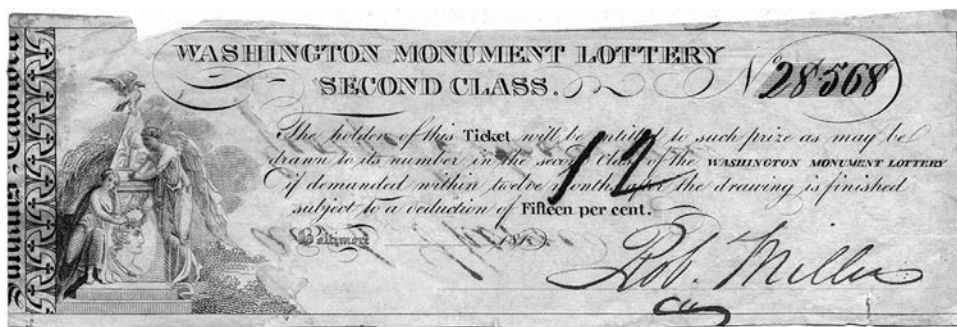 WASHINGTON MONUMENT LOTTERY
SECOND CLASS.
No 28568
The holder of this Ticket will be entitled to such prize as may be
drawn to its number in the second Class of the WASHINGTON MONUMENT LOTTERY
if demanded within twelve months after the drawing is finished
subject to a deduction of Fifteen per cent.
12
Baltimore 18
Rob. Miller